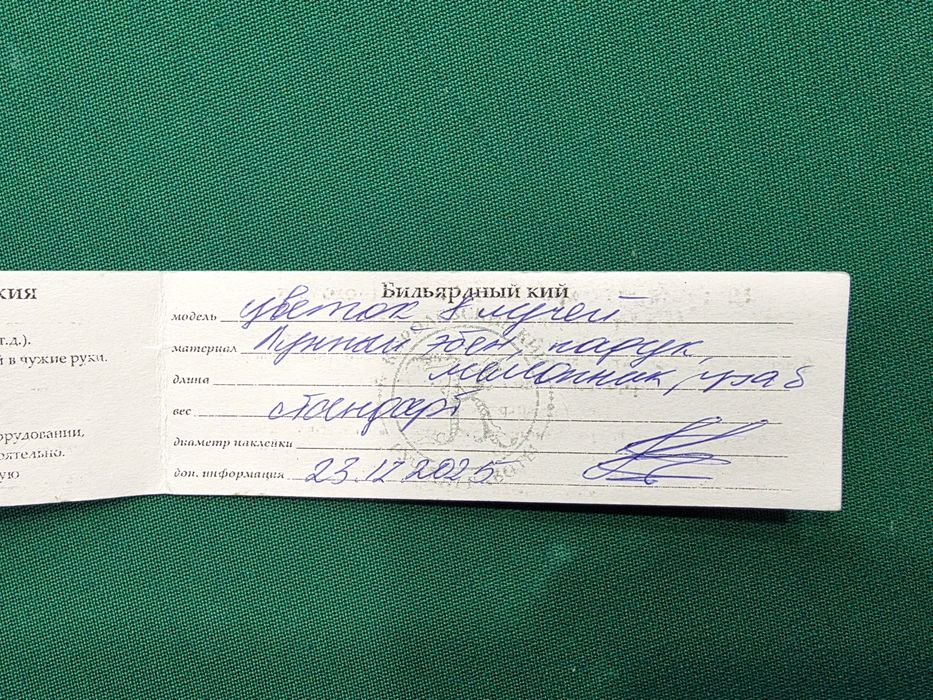 кия
т.д.).
й в чужие руки.
орудовании,
оятельно.
ую
Бильярдный кий
модель цветок 8 лучей
материал Лунный эбен, падук
длина мельхиор, граб
вес стандарт
диаметр наклейки
доп. информация 23.12.2025